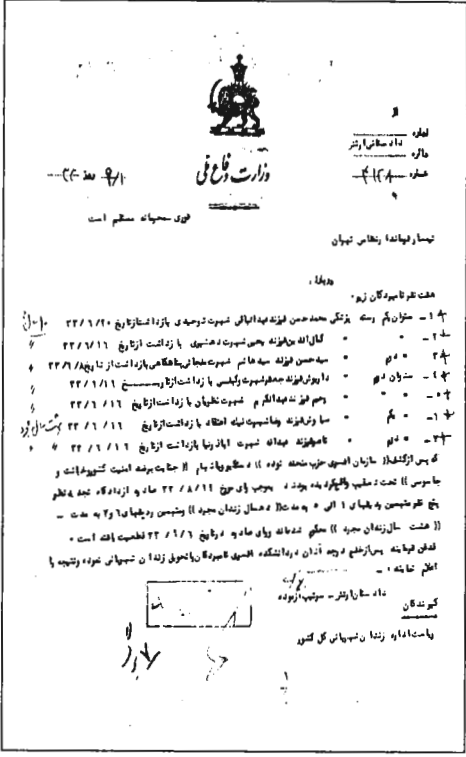 از
اداره دادستانی ارتش
دائره
شماره
وزارت دفاع ملی
فوری محرمانه مستقیم است
تیمسار فرماندار نظامی تهران
درباره:
هفت نفر نامبردگان زیر:
۱ـ ستوان یکم رسته پزشکی محمدحسن فرزند عبدالباقی شهرت توحیدی بازداشت از تاریخ ۲۰/۶/۳۳
۲ـ " " کمال الدین فرزند یحیی شهرت بازداشت از تاریخ ۱۶/۶/۳۳
۳ " دوم " سیدحسن فرزند سیدهاشم شهرت بازداشت از تاریخ
۴ـ ستوان دوم " داریوش فرزند جعفر شهرت بازداشت از تاریخ ۱۶/۶/۳۳
۵ـ " " " رحیم فرزند عبدالکریم شهرت نظریان بازداشت از تاریخ ۱۶/۶/۳۳
" یکم " سیاوش فرزند رضا شهرت نیک اعتقاد بازداشت از تاریخ ۱۶/۶/۳۳
" دوم " ناصر فرزند عبداله شهرت ایاذرنیا بازداشت از تاریخ ۱۶/۶/۳۳
که پس از کشف (( سازمان افسری حزب منحله توده )) دستگیر و باتهام (( جنایت برضد امنیت کشور و خیانت و
جاسوسی )) تحت تعقیب واقع گردیده بودند بموجب رای مورخ ۱۹/۸/۳۳ صادره از دادگاه تجدیدنظر
پنج نفر متهمین ردیفهای ۱ الی ۵ به مدت (( ده سال زندان مجرد )) و متهمین ردیفهای ۶ و ۷ به مدت ـ
(( هشت سال زندان مجرد )) محکوم شده‌اند و رای صادره در تاریخ قطعیت یافته است ۰
قدغن فرمایند پس از خلع درجه آنان در دانشکده افسری نامبردگان را تحویل زندان شهربانی نموده و نتیجه را
اعلام نمایند ۰ ـ
دادستان ارتش ـ سرتیپ آزموده
گیرندگان
ریاست اداره زندان شهربانی کل کشور